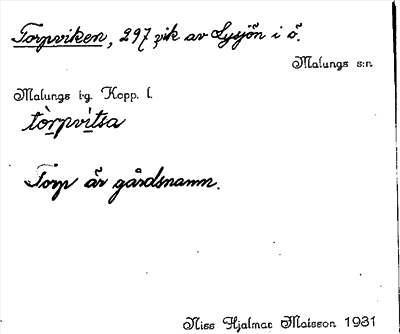 Torpviken, 297 vik av Lysjön i ö.
Malungs s:n.
Malungs tg. Kopp. l.
tòrpvìtsa
Torp är gårdsnamn.
Niss Hjalmar Matsson 1931